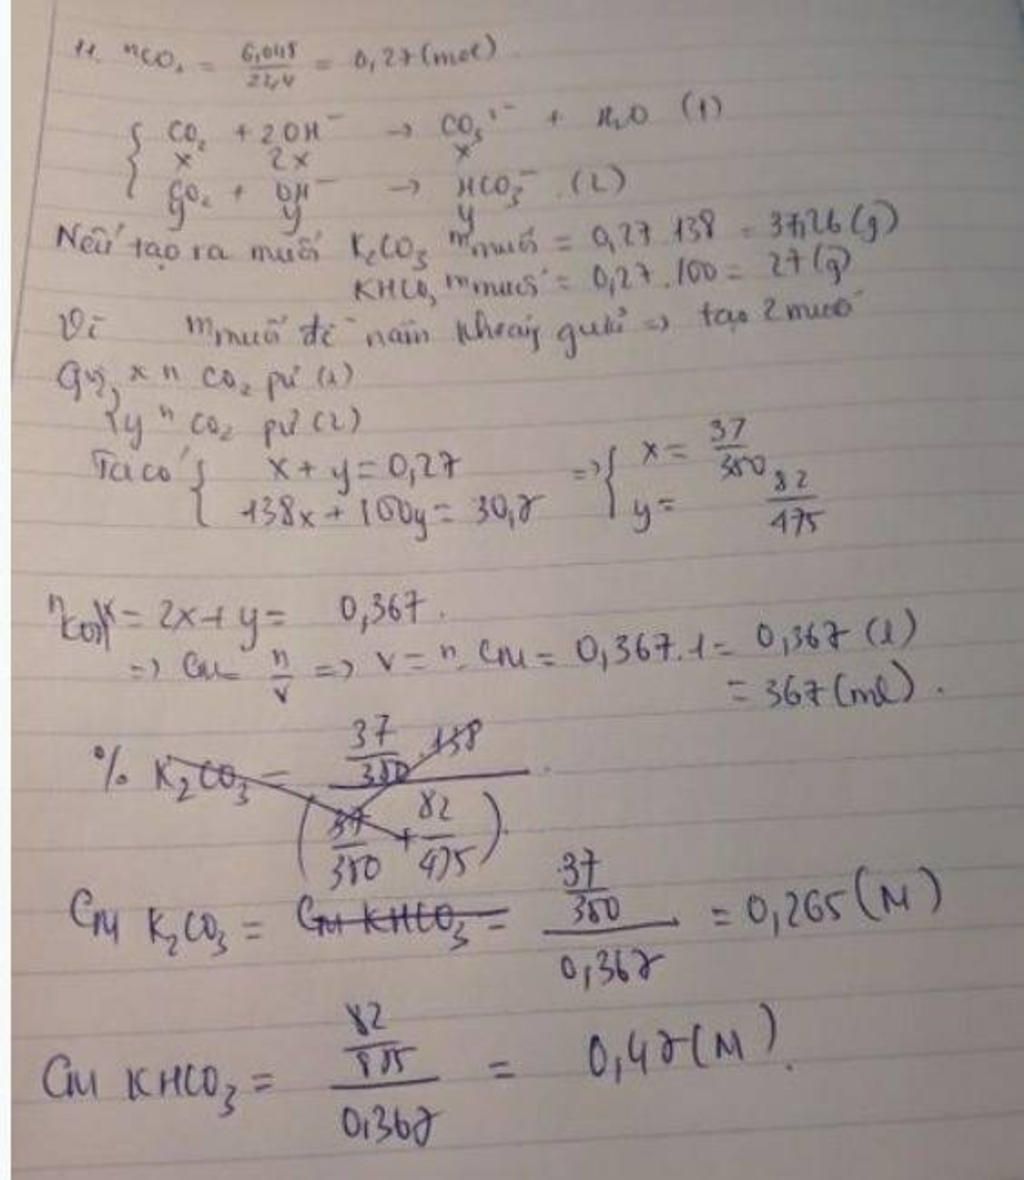 11. nCO₂ = 6,048/22,4 = 0,27 (mol)
CO₂ + 2OH⁻ → CO₃²⁻ + H₂O (1)
x 2x x
CO₂ + OH⁻ → HCO₃⁻ (2)
y y y
Nếu tạo ra muối K₂CO₃ mmuối = 0,27.138 = 37,26 (g)
KHCO₃ mmuối = 0,27.100 = 27 (g)
Vì mmuối đề nằm khoảng giữa => tạo 2 muối
Gọi x n CO₂ pứ (1)
y n CO₂ pứ (2)
Ta có { x + y = 0,27 => { x = 37/380
138x + 100y = 30,7 y = 82/475
nKOH = 2x + y = 0,367.
=> CM = n/v => v = n.CM = 0,367.1 = 0,367 (l)
= 367 (ml).
% K₂CO₃ = 37/380 .138
(37/380 + 82/475).
CM K₂CO₃ = CM KHCO₃ = 37/380 / 0,367 = 0,265 (M)
CM KHCO₃ = / 0,367 = 0,47 (M).